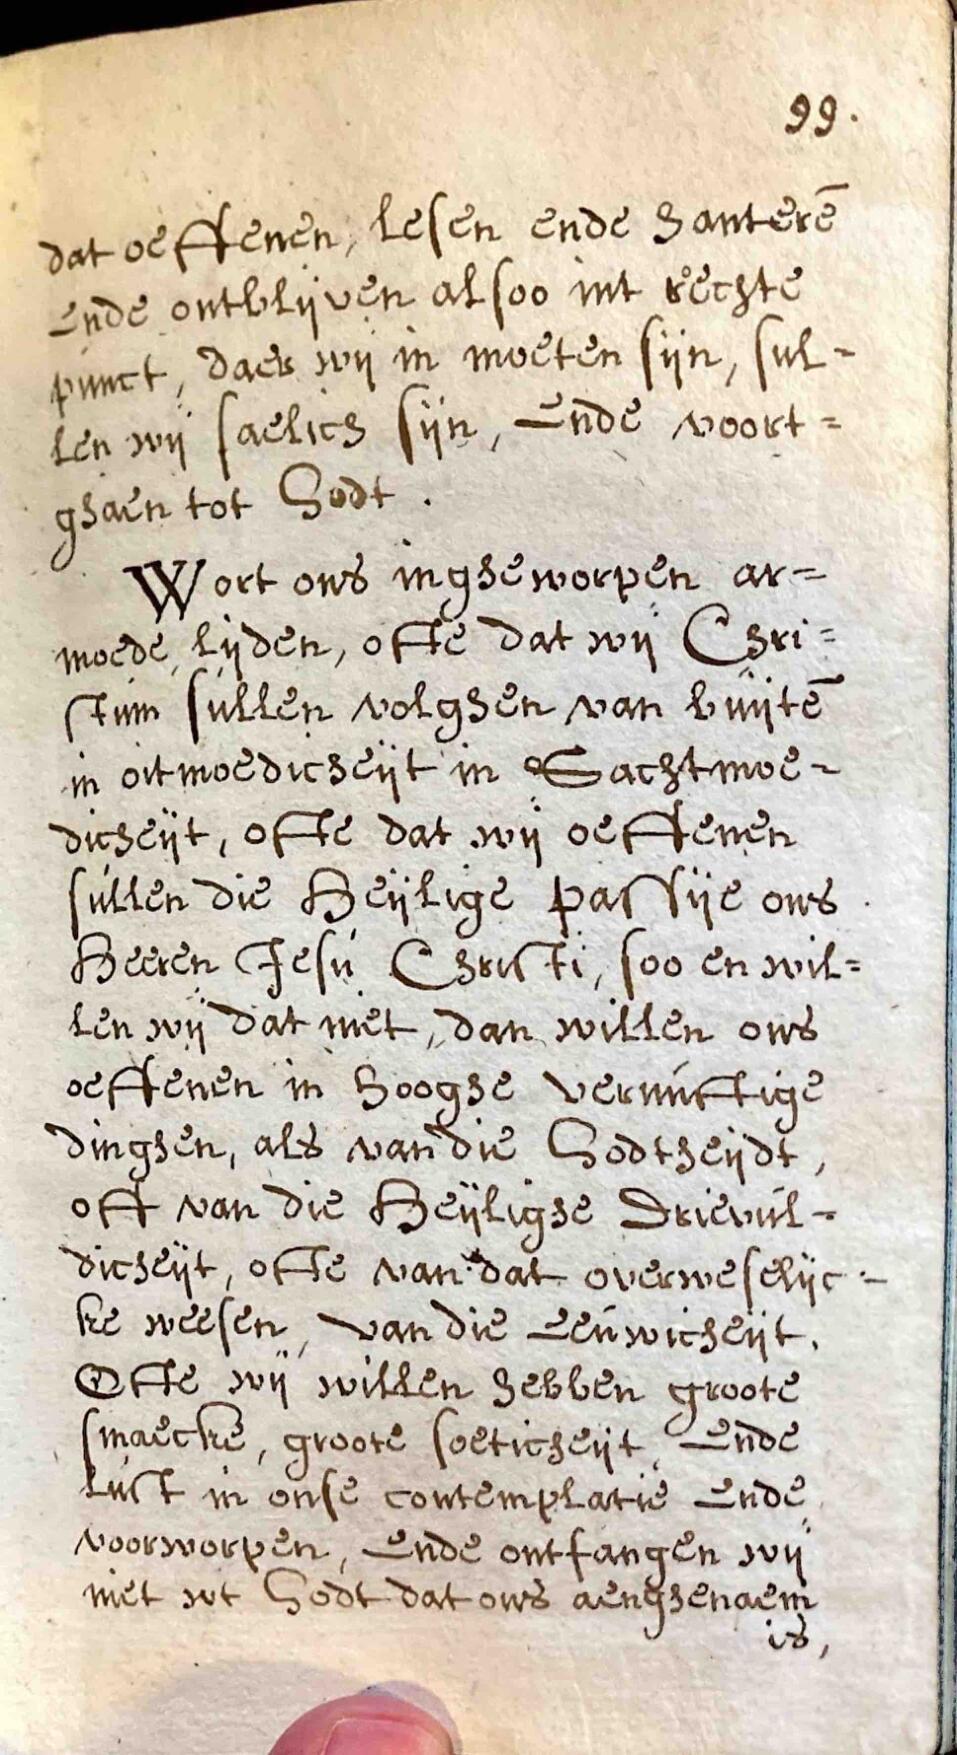 99.
dat oeffenen, lesen ende hanterē
ende ontblijven alsoo int rechte
punct, daer wij in moeten sijn, sul-
len wij saelich sijn, ende voort-
ghaen tot Godt.
Wort ons ingheworpen ar-
moede, lijden, ofte dat wij Chri-
stum sullen volghen van buijtē
in oitmoedicheijt in Sachtmoe-
dicheijt, ofte dat wij oeffenen
sullen die Heijlige passije ons
Heeren Jesu Christi, soo en wil-
len wij dat niet, dan willen ons
oeffenen in hooghe vernuftige
dinghen, als van die Godtheijdt,
oft van die Heijlighe Drievul-
dicheijt, ofte van dat overweselijc-
ke weesen, van die Eeuwicheijt.
Ofte wij willen hebben groote
smaecke, groote soeticheijt, ende
lust in onse contemplatie ende
voorworpen, ende ontfangen wij
niet wt Godt dat ons aenghenaem
is,